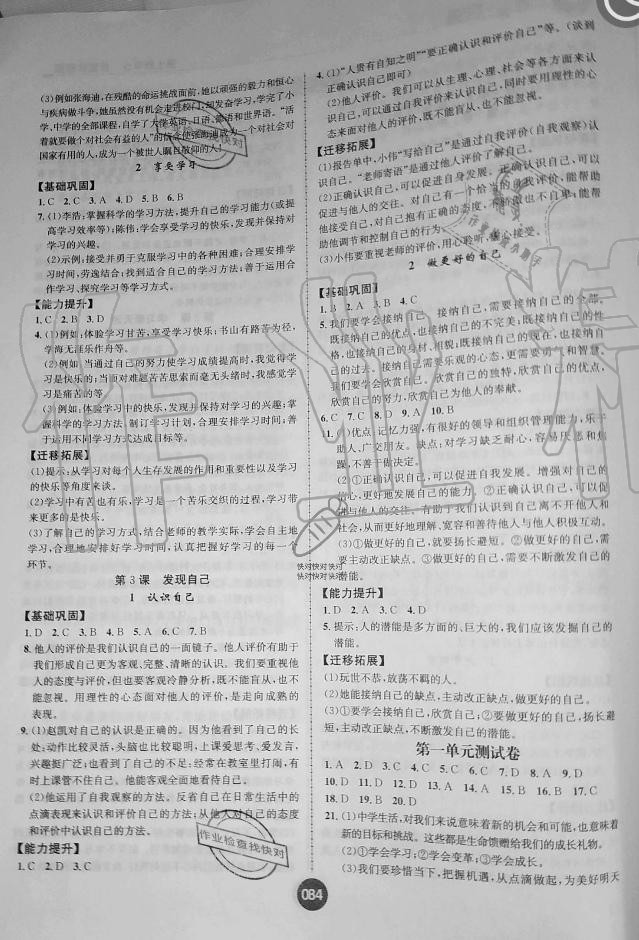 (3)例如张海迪,在残酷的命运挑战面前,她以顽强的毅力和恒心
与疾病做斗争,她虽然没有机会走进校门,却发奋学习,学完了小
学、中学的全部课程,自学了大学英语、日语、德语和世界语。“活
着就要做个对社会有益的人”的信念使张海迪成为一个对社会对
国家有用的人,成为一个被世人瞩目敬仰的人!
2 享受学习
【基础巩固】
1. C 2. C 3. A 4. D 5. B 6. B
7. (1)李浩:掌握科学的学习方法,提升自己的学习能力(或提
高学习效率等);陈伟:学会享受学习的快乐,发现并保持对
学习的兴趣。
(2)示例:接受并勇于克服学习中的困难;合理安排学
习时间,劳逸结合;找到适合自己的学习方法;善于运用合
作学习、探究学习等学习方式。
【能力提升】
1. C 2. B 3. D
4. (1)例如:体验学习甘苦,享受学习快乐;书山有路苦为径,
学海无涯乐作舟等。
(2)例如:当通过自己的努力使学习成绩提高时,我觉得学
习是快乐的;当面对难题苦苦思索而毫无头绪时,我感觉学
习是痛苦的等
(3)例如:体验学习中的快乐,发现并保持对学习的兴趣;掌
握科学的学习方法,制订学习计划,合理安排学习时间;善
于运用不同学习方式达成目标等。
【迁移拓展】
(1)提示:从学习对每个人生存发展的作用和重要性以及学习
的快乐等角度来谈。
(2)学习中有苦也有乐,学习是一个苦乐交织的过程,学习带
来更多的是快乐。
(3)了解自己的学习方式,结合老师的教学实际,学会自主地
学习,合理地安排好学习时间,认真把握好学习的每一个
环节。
第3课 发现自己
1 认识自己
【基础巩固】
1. D 2. C 3. B 4. B 5. A 6. C 7. B
8. 他人的评价是我们认识自己的一面镜子。他人评价有助于
我们形成自己更为客观、完整、清晰的认识。我们要重视他
人的态度与评价,但也要客观冷静分析,既不能盲从,也不能
忽视。用理性的心态面对他人的评价,是走向成熟的
表现。
9. (1)赵凯对自己的认识是正确的。因为他看到了自己的长
处:动作比较灵活,头脑也比较聪明,上课爱学习、爱发言,
兴趣挺广泛;也看到了自己的不足:经常在教室里打闹,有
时上课管不住自己。他能客观全面地看待自己。
(2)他运用了自我观察的方法。反省自己在日常生活中的
点滴表现来认识自己的方法;从他人对自己的态度
和评价中认识自己的方法。
【能力提升】
1. C 2. D 3. C
4. (1)“人贵有自知之明”“要正确认识和评价自己”等。(谈到
正确认识自己即可)
(2)他人评价。我们可以从生理、心理、社会等各方面来认
识自己,可以通过自我评价来认识自己,同时要用理性的心
态来面对他人的评价,既不能盲从,也不能忽视。
【迁移拓展】
(1)报告单中,小伟“写给自己”是通过自我评价(自我观察)认
识自己。“老师寄语”是通过他人评价了解自己。
(2)正确认识自己,可以促进自身发展。正确认识自己,可以
促进与他人的交往。对自己有一个恰当的自我评价,能帮助
他接受自己,对自己抱有正确的态度,不骄傲也不自卑;能帮
助他调节和控制自己的行为。
(3)小伟要重视老师的评价,用心聆听,虚心接受。
2 做更好的自己
【基础巩固】
1. B 2. A 3. A 4. C
5. 我们要学会接纳自己。接纳自己,需要接纳自己的全部。
既接纳自己的优点,也接纳自己的不完美;既接纳自己的性
格,也接纳自己的身材、相貌;既接纳自己的现在,也接纳自
己的过往。接纳自己需要乐观的心态,更需要勇气和智慧。
我们要学会欣赏自己。欣赏自己的独特,欣赏自己的优点,
欣赏自己的努力,欣赏自己为他人的奉献。
6. C 7. C 8. D 9. A 10. B
11. (1)优点:记忆力强,有很好的领导和组织管理能力,乐于
助人、广交朋友。缺点:对学习缺乏耐心,容易丢三落四,
不善于做决定。
(2)①正确认识自己,可以促进自我发展。增强对自己的
信心,更好地发展自己的能力。②正确认识自己,可以促
进与他人的交往。有助于我们认识到自己离不开他人和
社会,从而更好地理解、宽容和善待他人与他人积极互动。
(3)①要扬长避短。②要主动改正缺点。做更好的自己,需
要主动改正缺点。③做更好的自己,需要不断激发自己的
潜能。
【能力提升】
1. D 2. C 3. C 4. B
5. 提示:人的潜能是多方面的、巨大的,我们应该发掘自己的
潜能。
【迁移拓展】
(1)玩世不恭,放荡不羁的人。
(2)她能接纳自己的缺点,主动改正缺点,做更好的自己。
(3)①要学会接纳自己的缺点。②要做更好的自己,扬长避
短,主动改正缺点,不断激发自己的潜能。
第一单元测试卷
1. A 2. D 3. D 4. B 5. C 6. C 7. D 8. A 9. D
10. C 11. D 12. B 13. C 14. C 15. C 16. A 17. C
18. D 19. B 20. D
21. (1)中学生活,对我们来说意味着新的机会和可能,也意味着
新的目标和挑战。这些都是生命馈赠给我们的成长礼物。
(2)①学会学习;②学会变革;③学会成长。
(3)我们要珍惜当下,把握机遇,从点滴做起,为美好明天
084
作业检查找快对
快对快对快对
快对快对快对